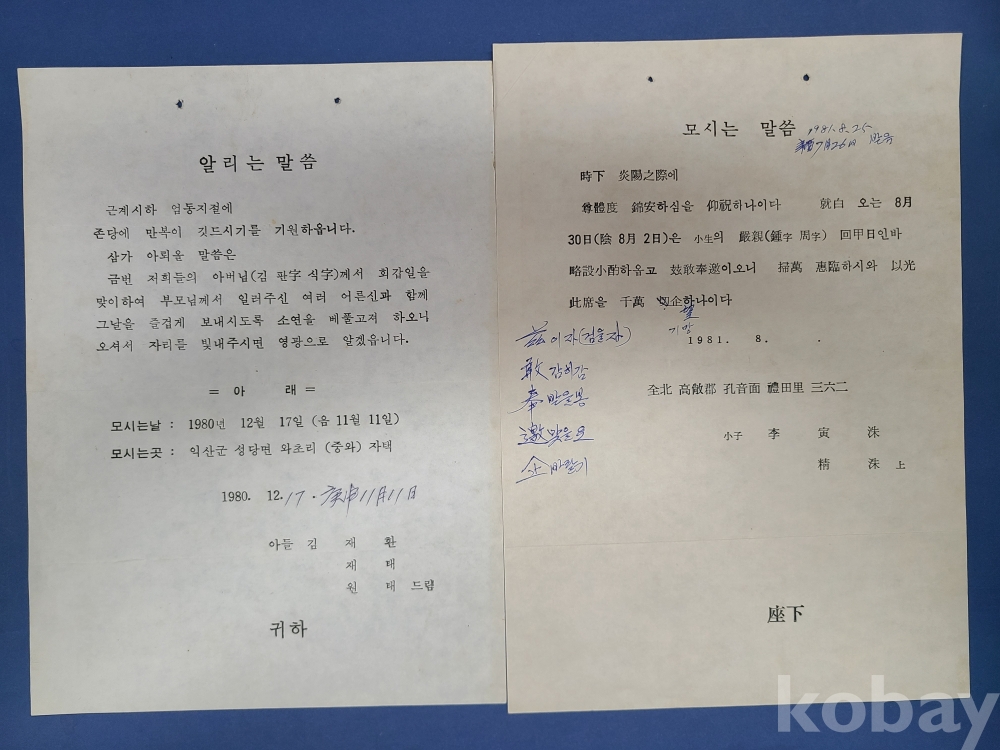 알리는 말씀
근계시하 엄동지절에
존당에 만복이 깃드시기를 기원하옵니다.
삼가 아뢰올 말씀은
금번 저희들의 아버님(김 판字 식字)께서 회갑일을
맞이하여 부모님께서 일러주신 여러 어른신과 함께
그날을 즐겁게 보내시도록 소연을 베풀고져 하오니
오셔서 자리를 빛내주시면 영광으로 알겠읍니다.
= 아 래 =
모시는날 : 1980년 12월 17일 (음 11월 11일)
모시는곳 : 익산군 성당면 와초리 (중와) 자택
1980. 12. 17. 庚申 11月 11日
아들 김 재 환
재 태
원 태 드림
귀하
모시는 말씀
1981. 8. 25
7月26日 받음
時下 炎陽之際에
尊體度 錦安하심을 仰祝하나이다 就白 오는 8月
30日(陰 8月 2日)은 小生의 嚴親(鍾字 周字) 回甲日인바
略設小酌하옵고 玆敢奉邀이오니 掃萬 惠臨하시와 以光
此席을 千萬 企하나이다
望
기망
玆 이자(검을자)
敢 감히감
奉 받을봉
邀 맞을요
企 바랄기
1981. 8. .
全北 高敞郡 孔音面 禮田里 三六二
小子 李 寅 洙
精 洙 上
座下
kobay